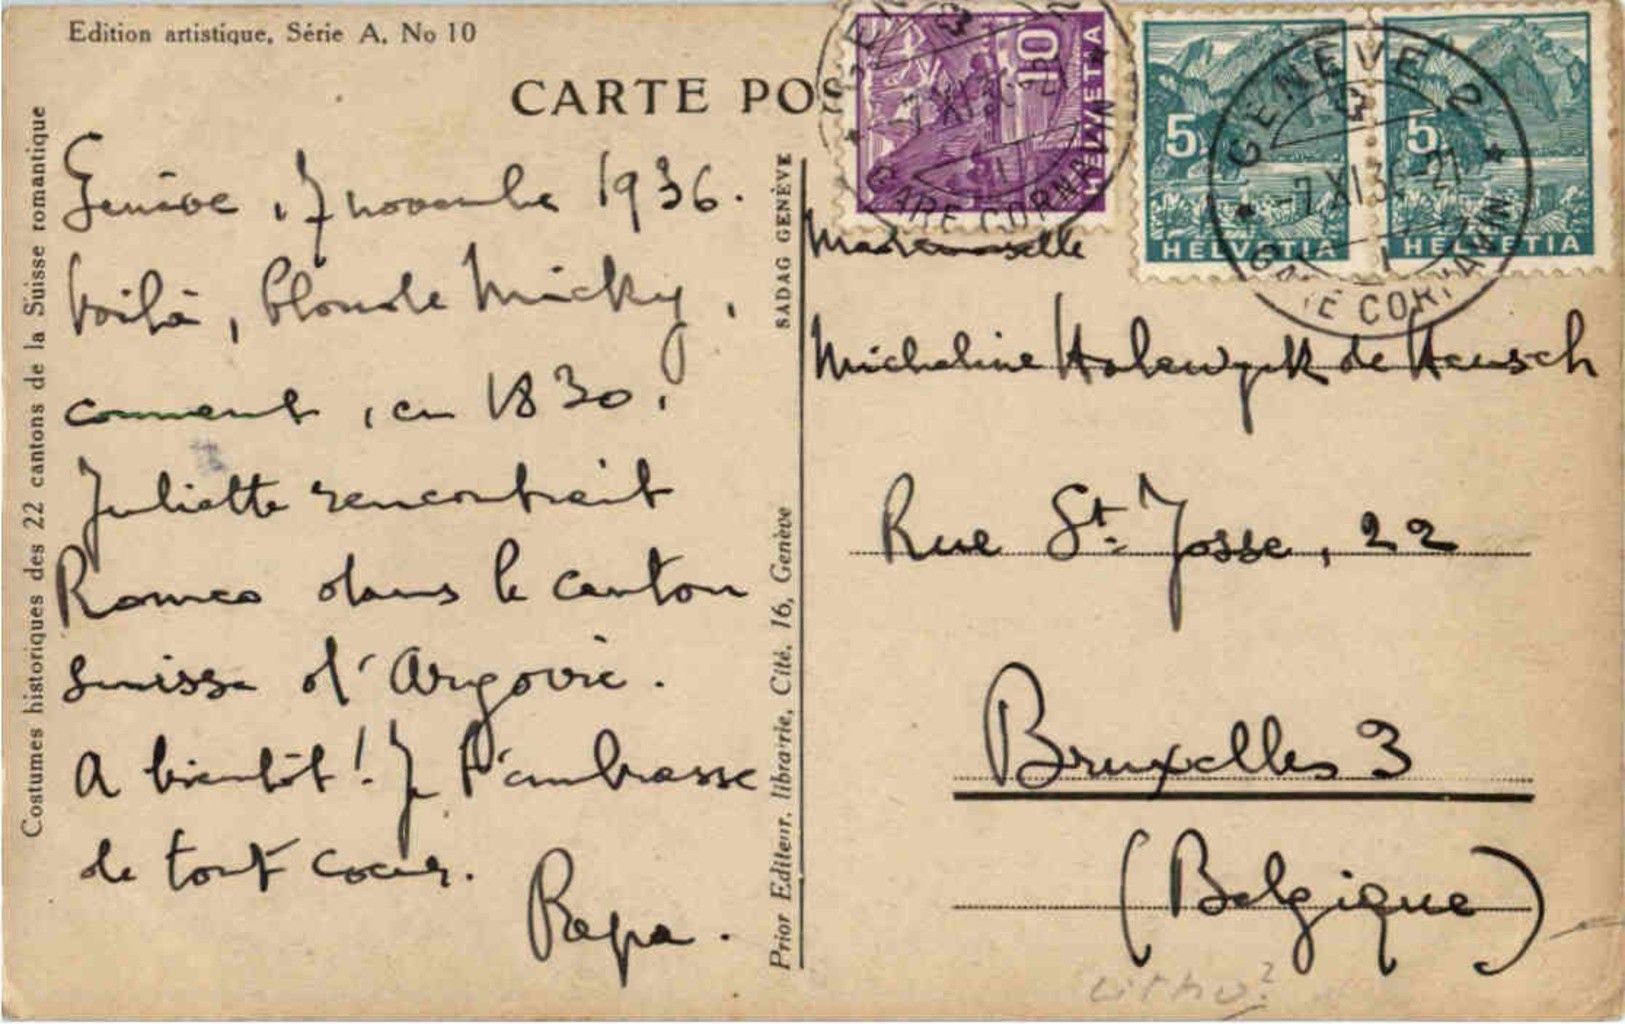 Edition artistique, Série A, No 10
CARTE POS
Costumes historiques des 22 cantons de la Suisse romantique
Genève, 7 novembre 1936.
Voilà, blonde Micky,
comment, en 1830,
Juliette rencontrait
Romeo dans le canton
suisse d'Argovie.
A bientôt! Je t'embrasse
de tout coeur.
Papa.
SADAG GENÈVE
Prior Editeur, librairie, Cité, 16, Genève
10
HELVETIA
GARE CORNAVIN
5
HELVETIA
5
HELVETIA
GENÈVE 2
-7.XI.36
GARE CORNAVIN
Mademoiselle
Micheline Holewyck de Heusch
Rue St. Josse, 22
Bruxelles 3
(Belgique)
Litho?